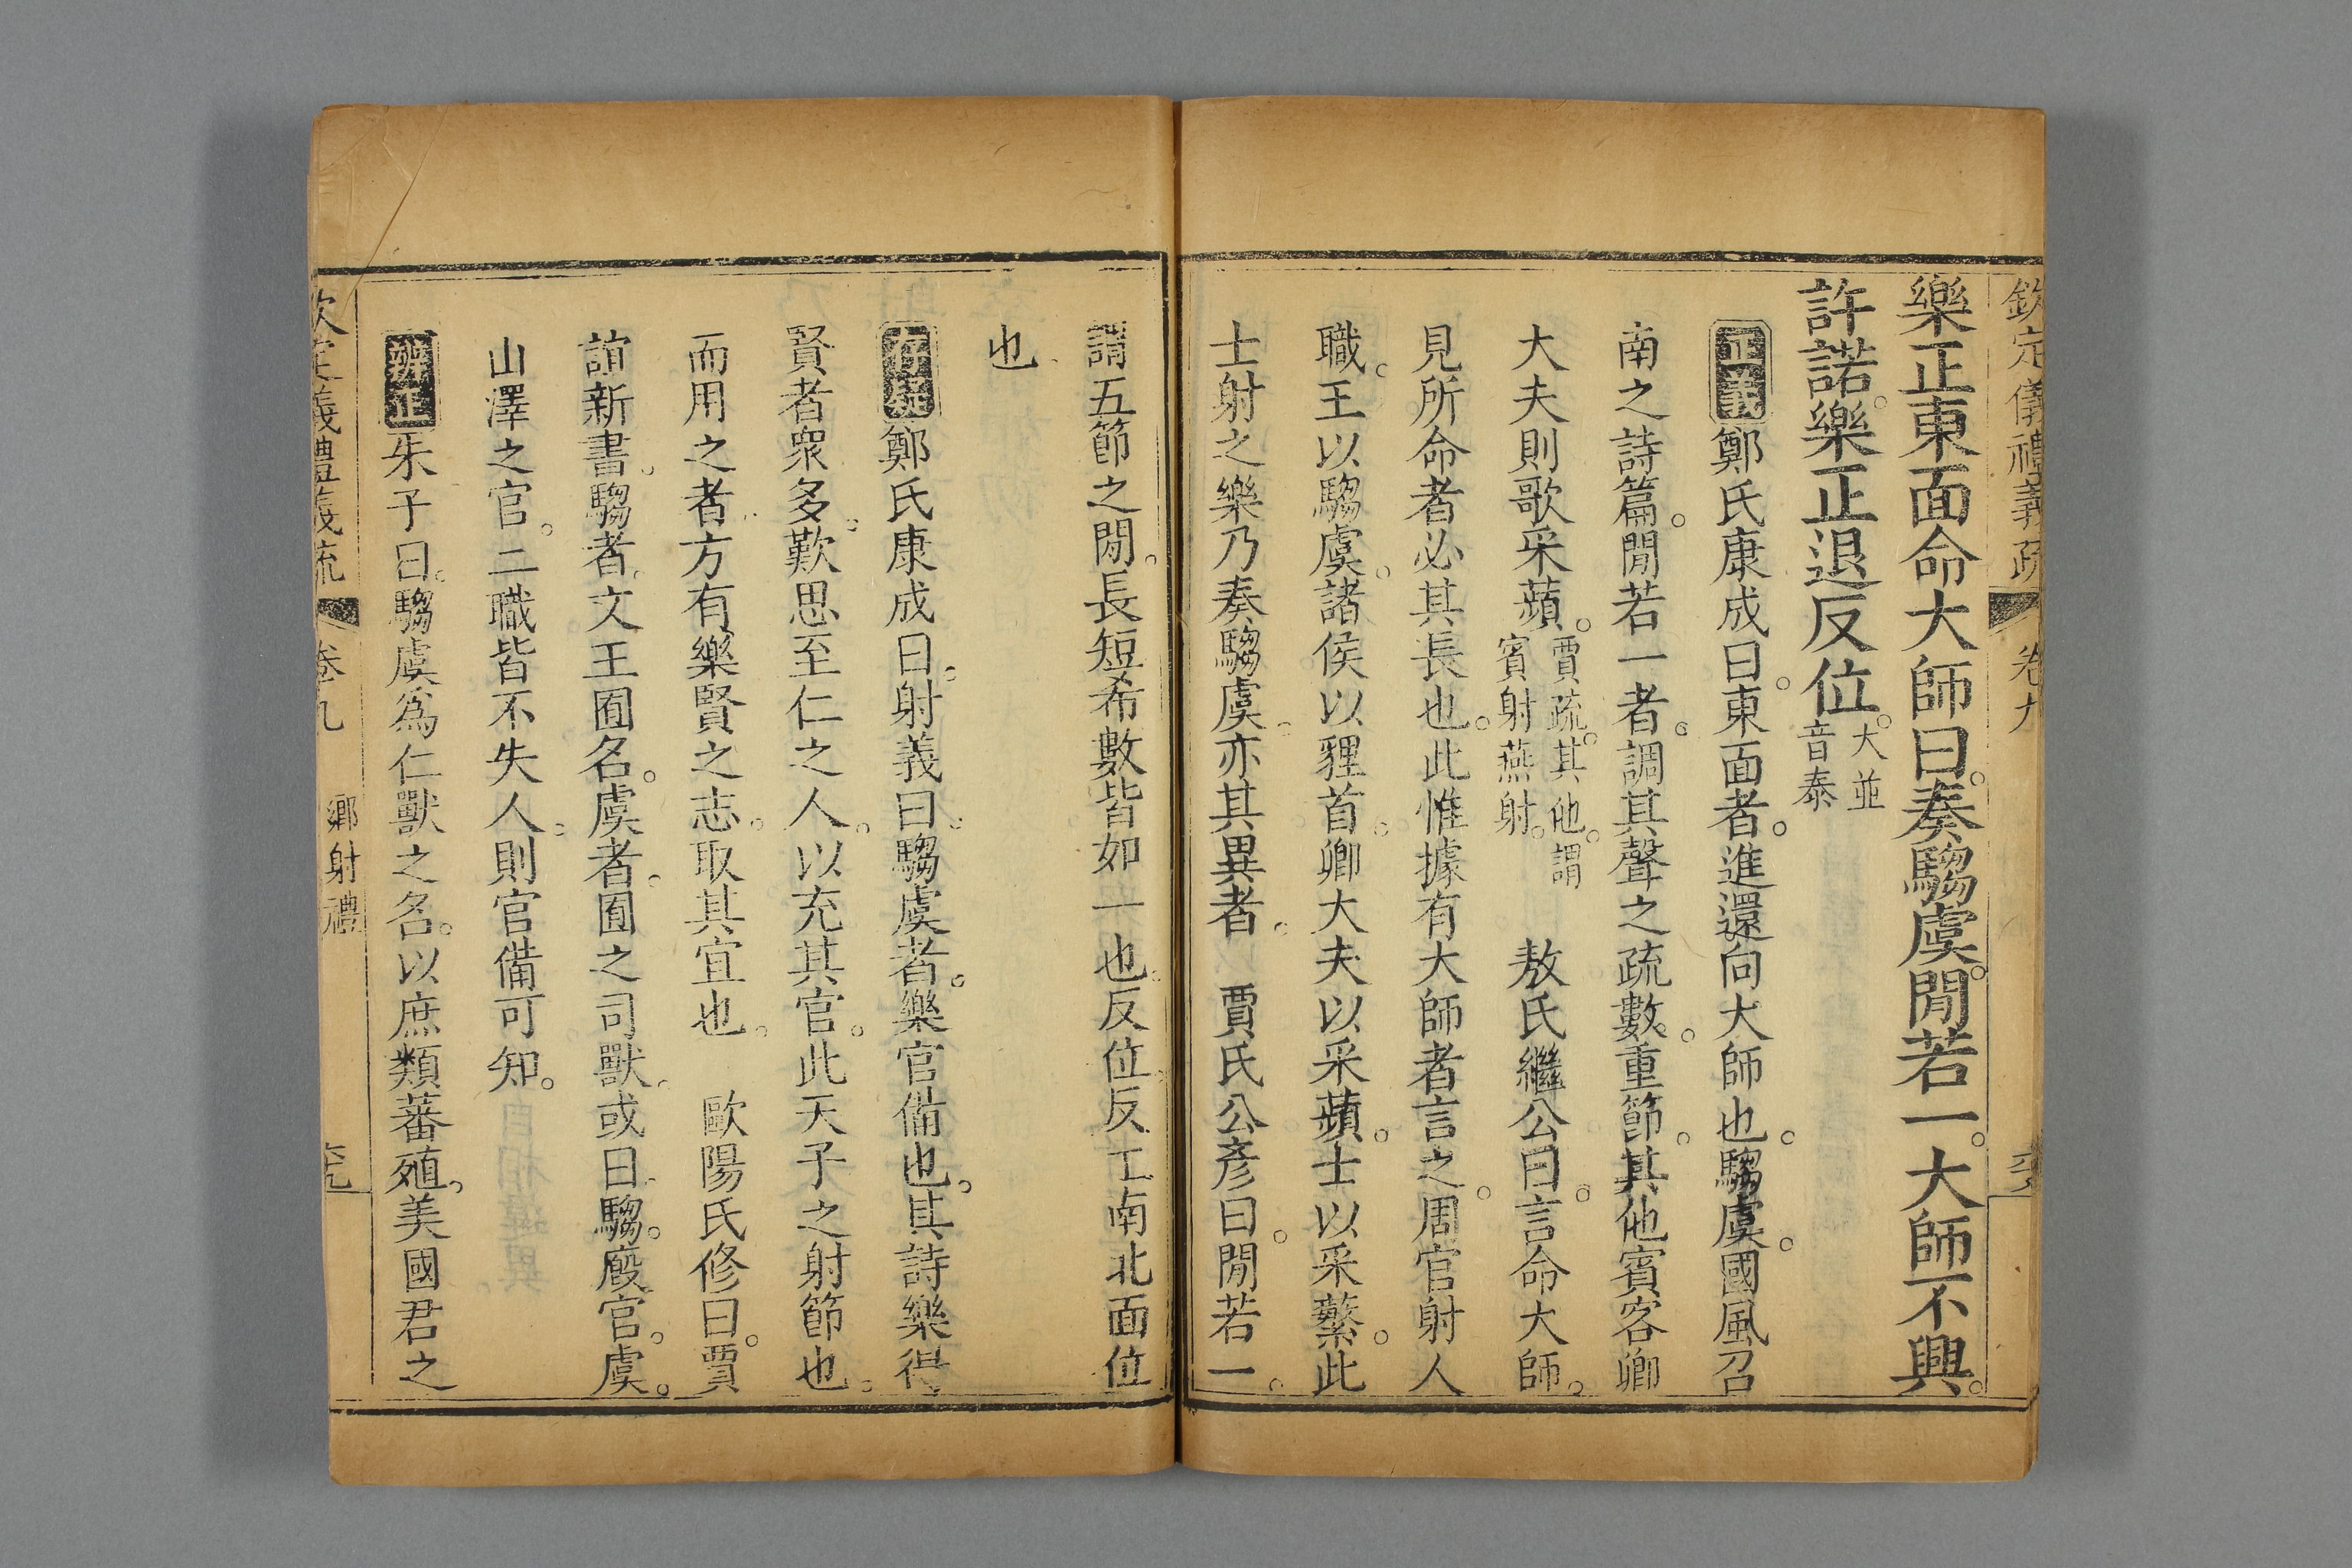 欽定儀禮義疏 卷九
樂正東面命大師曰。奏騶虞。閒若一。大師不興。
許諾。樂正退反位。大並音泰
正義鄭氏康成曰。東面者。進還向大師也。騶虞。國風召
南之詩篇。閒若一者。調其聲之疏數。重節。其他賓客卿
大夫則歌采蘋。賈疏。其他。謂賓射燕射。 敖氏繼公曰。言命大師。
見所命者必其長也。此惟據有大師者言之。周官射人
職。王以騶虞。諸侯以貍首。卿大夫以采蘋。士以采蘩。此
士射之樂乃奏騶虞。亦其異者。 賈氏公彥曰。閒若一。
謂五節之閒。長短希數皆如一也。反位反工南北面位
也
存疑鄭氏康成曰。射義曰。騶虞者。樂官備也。其詩樂得
賢者衆多。歎思至仁之人。以充其官。此天子之射節也。
而用之者方有樂賢之志。取其宜也。 歐陽氏修曰。賈
誼新書。騶者。文王囿名。虞者。囿之司獸。或曰。騶。廄官。虞。
山澤之官。二職皆不失人。則官備可知。
辨正朱子曰。騶虞爲仁獸之名。以庶類蕃殖。美國君之
欽定儀禮義疏 卷九 鄉射禮